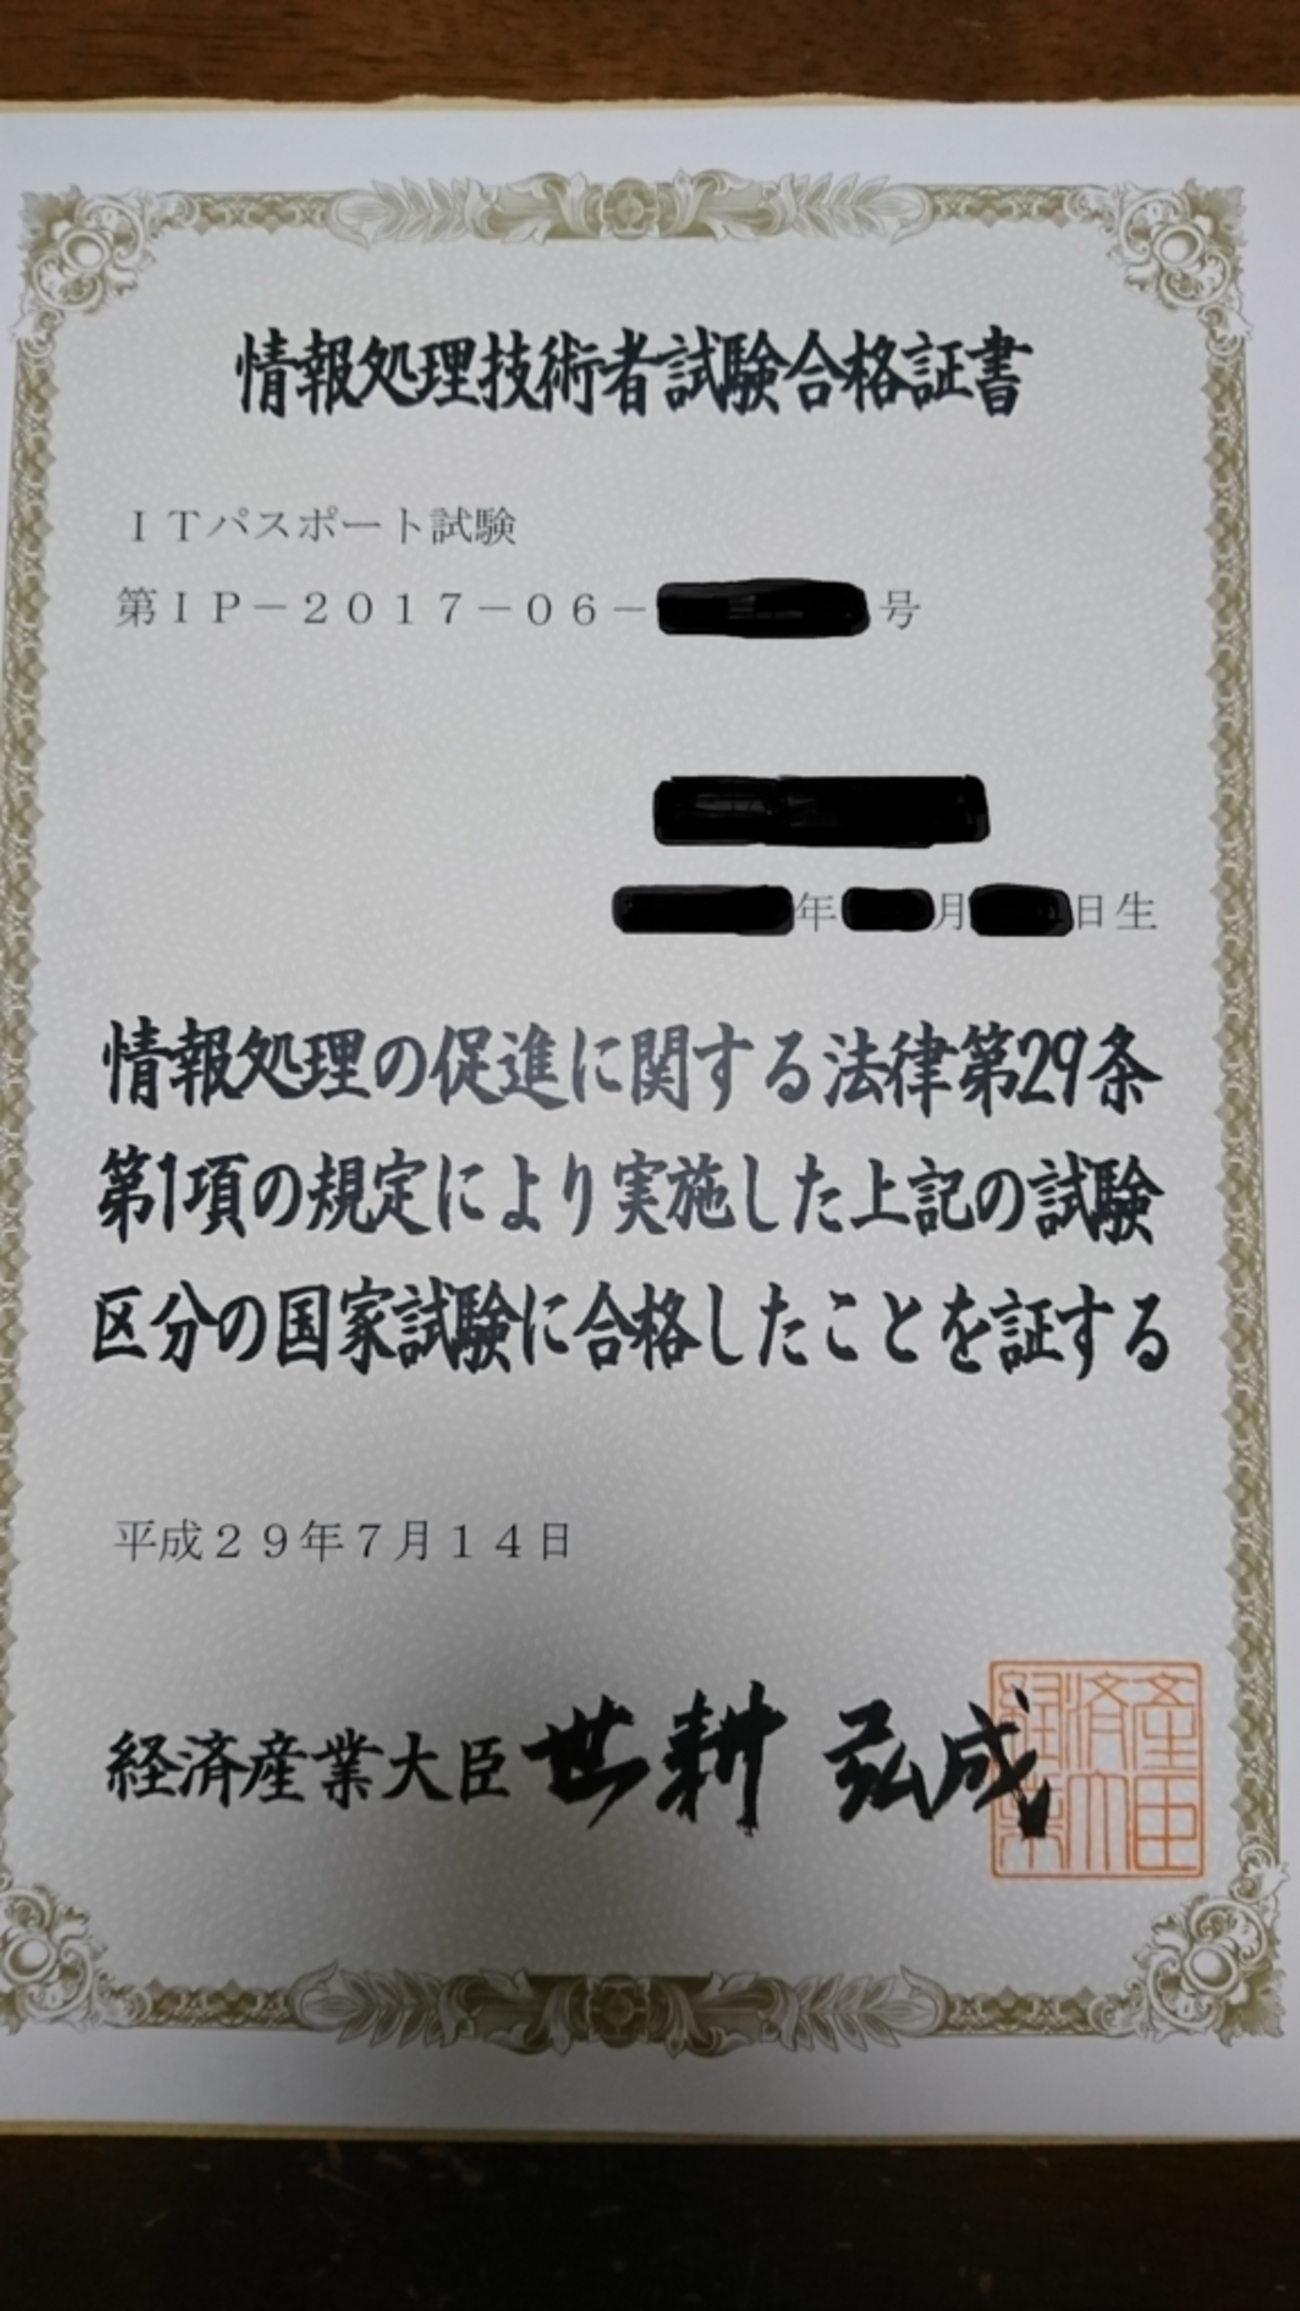 情報処理技術者試験合格証書
ＩＴパスポート試験
第ＩＰ－２０１７－０６－号
年月日生
情報処理の促進に関する法律第29条
第1項の規定により実施した上記の試験
区分の国家試験に合格したことを証する
平成２９年７月１４日
経済産業大臣 世耕 弘成